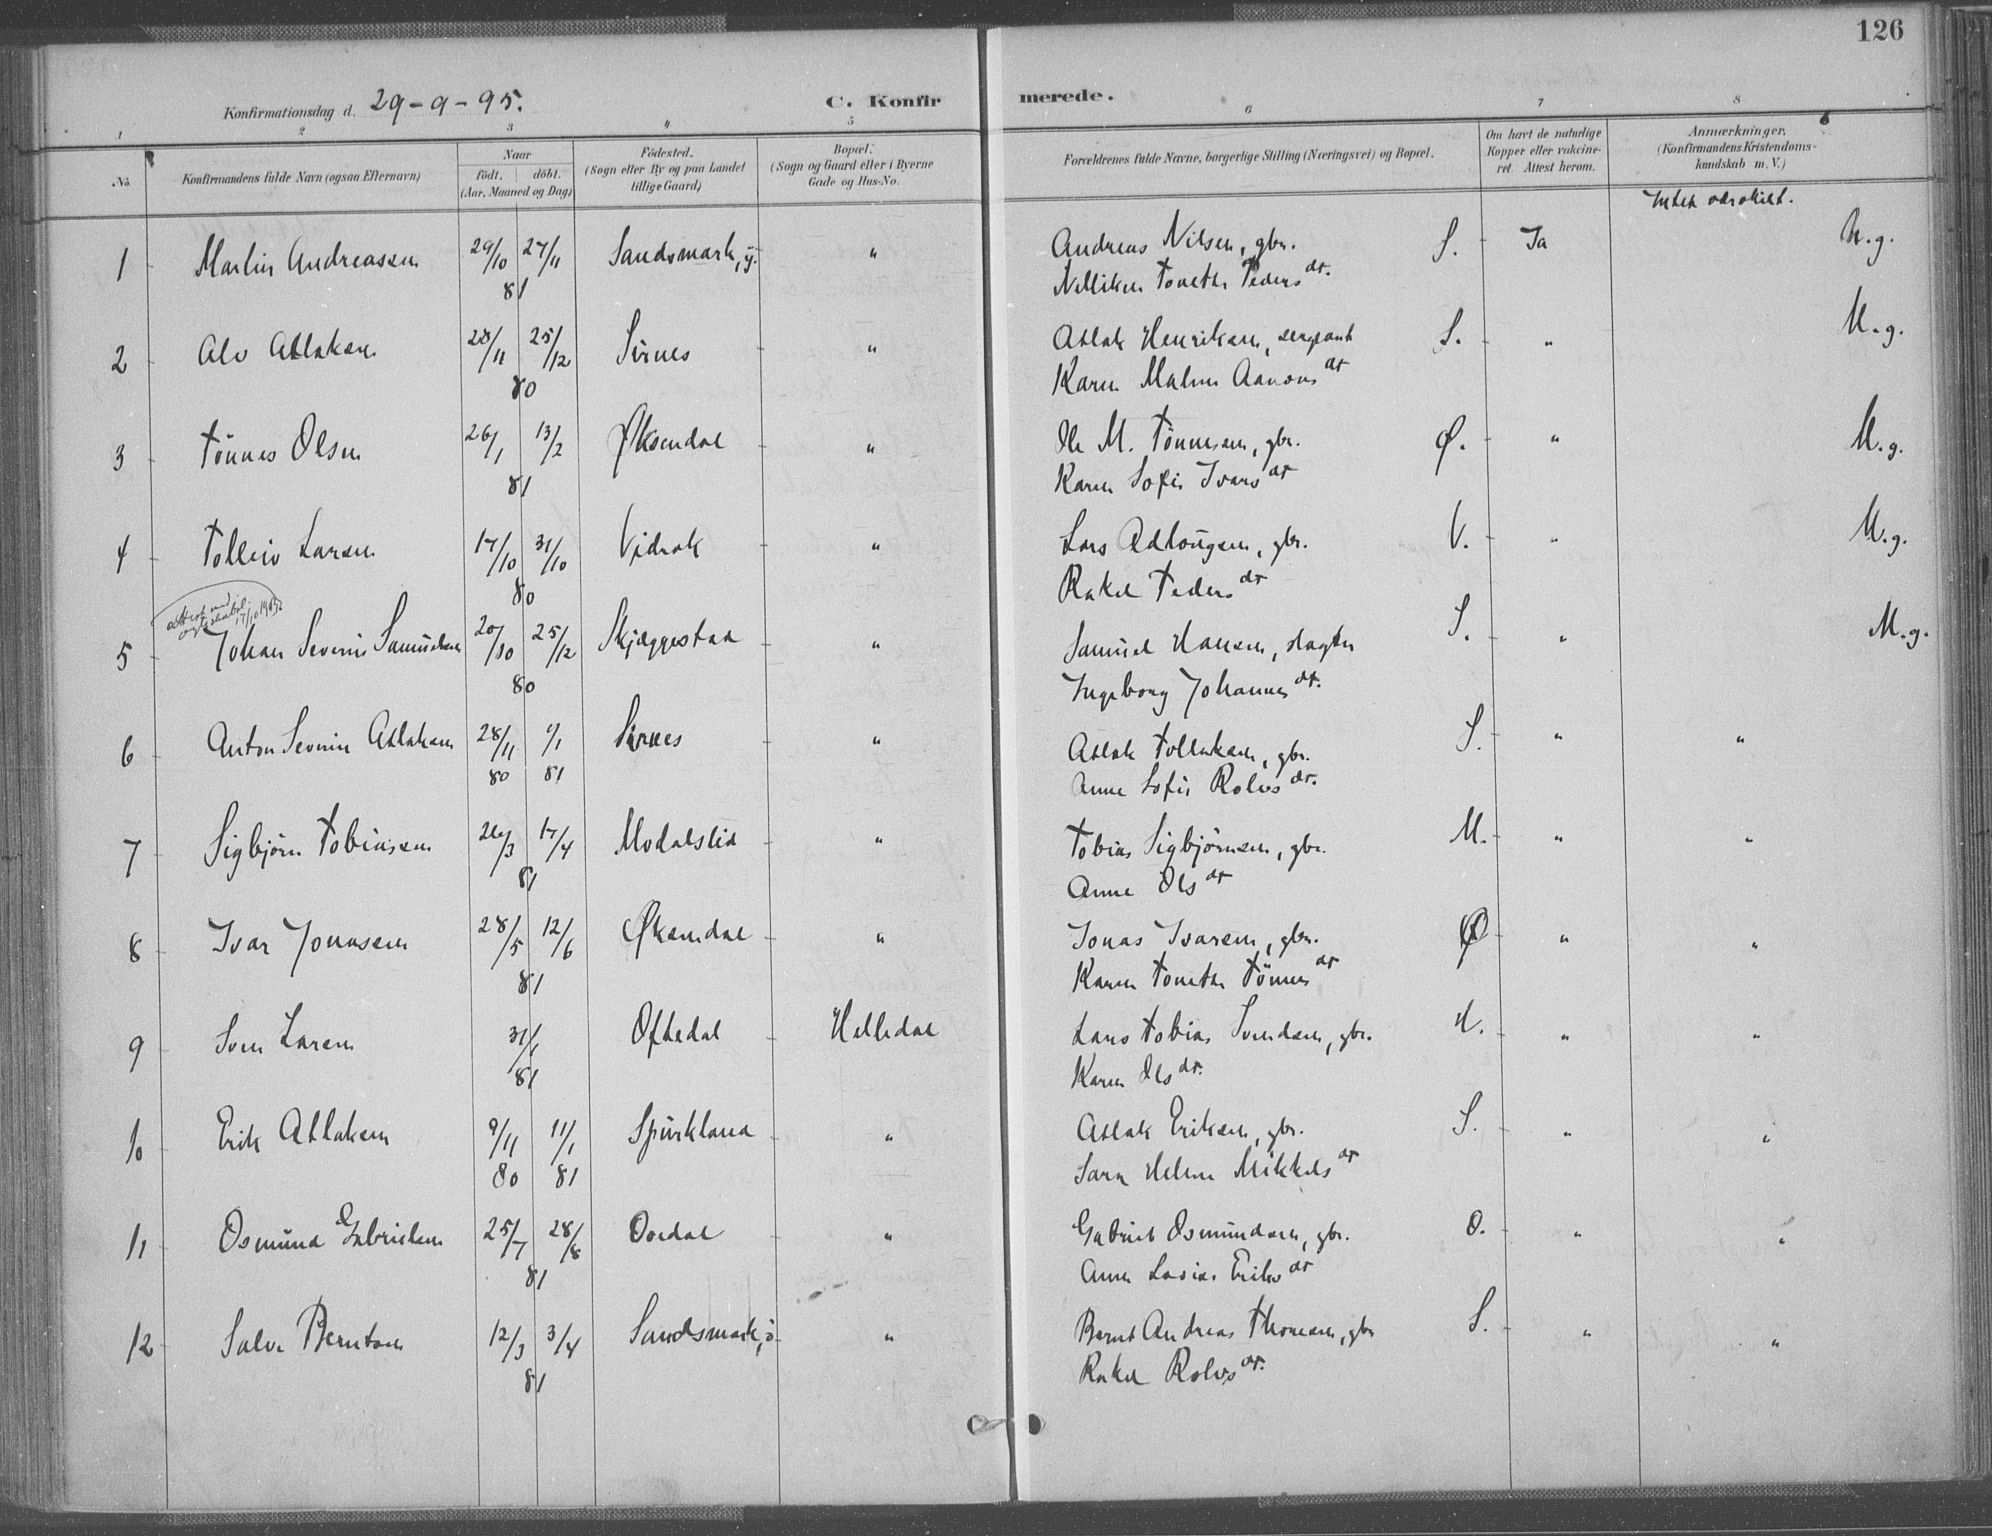 126
Konfirmationsdag d. 29-9-95.
C. Konfirmerede.
1 2 3 4 5 6 7 8
No.
Konfirmandens fulde Navn (ogsaa Efternavn)
Naar
födt. döbt.
(Aar, Maaned og Dag)
Födested.
(Sogn eller By og paa Landet
tillige Gaard)
Bopæl.
(Sogn og Gaard eller i Byerne
Gade og Hus-No.
Forældrenes fulde Navne, borgerlige Stilling (Næringsvei) og Bopæl.
Om havt de naturlige
Kopper eller vakcine-
ret. Attest herom.
Anmærkninger.
(Konfirmandens Kristendoms-
kundskab m. V.)
Intet særskilt.
1 Martin Andreassen 29/10 27/11 Sandsmark, y. " Andreas Nilsen, gbr. S. Ja M.g.
81 Nelliken Tonethe Peders dr.
2 Alv Atlaksen 28/11 25/12 Sirnes " Atlak Henriksen, sergeant S. " M.g.
80 Karen Malene Aanons dr
3 Tönnes Olsen 26/1 13/2 Øksendal " Ole M. Tönnesen, gbr. Ø. " M.g.
81 Karen Sofie Ivars dr
4 Tolleiv Larsen 17/10 31/10 Vidrak " Lars Adtougsen, gbr. V. " M.g.
80 Rakel Peders dr
attest 17/10 1905
5 Johan Severin Samuelsen 20/10 25/12 Skjæggestad " Samuel Hansen, slagter S. " M.g.
80 Ingeborg Johannes dr.
6 Anton Severin Atlaksen 28/11 9/1 Sirnes " Atlak Tollaksen, gbr. S. " "
80 81 Anne Sofie Rolvs dr.
7 Sigbjörn Tobiassen 26/3 17/4 Modalslid " Tobias Sigbjörnsen, gbr. M. " "
81 Anne Ols dr
8 Ivar Jonassen 28/5 12/6 Øksendal " Jonas Ivarsen, gbr. Ø " "
81 Karen Tonethe Tönnes dr
9 Sven Larsen 31/1 Oftedal Helledal Lars Tobias Svendsen, gbr. H. " "
81 Karen Ols dr.
10 Erik Atlaksen 9/11 11/1 Spürkland " Atlak Eriksen, gbr. S. " "
80 81 Sara Helene Mikkels dr
11 Osmünd Gabrielsen 25/7 28/8 Ovedal " Gabriel Osmündsen, gbr. O. " "
81 Anne Lovise Eriks dr
12 Salve Berntsen 12/3 3/4 Sandsmark, i. " Bernt Andreas Thomesen, gbr S. " "
81 Rakel Rolvs dr.